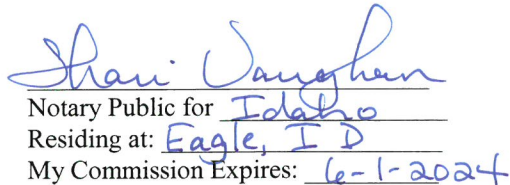 Shari Vaughan
Notary Public for Idaho
Residing at: Eagle, ID
My Commission Expires: 6-1-2024